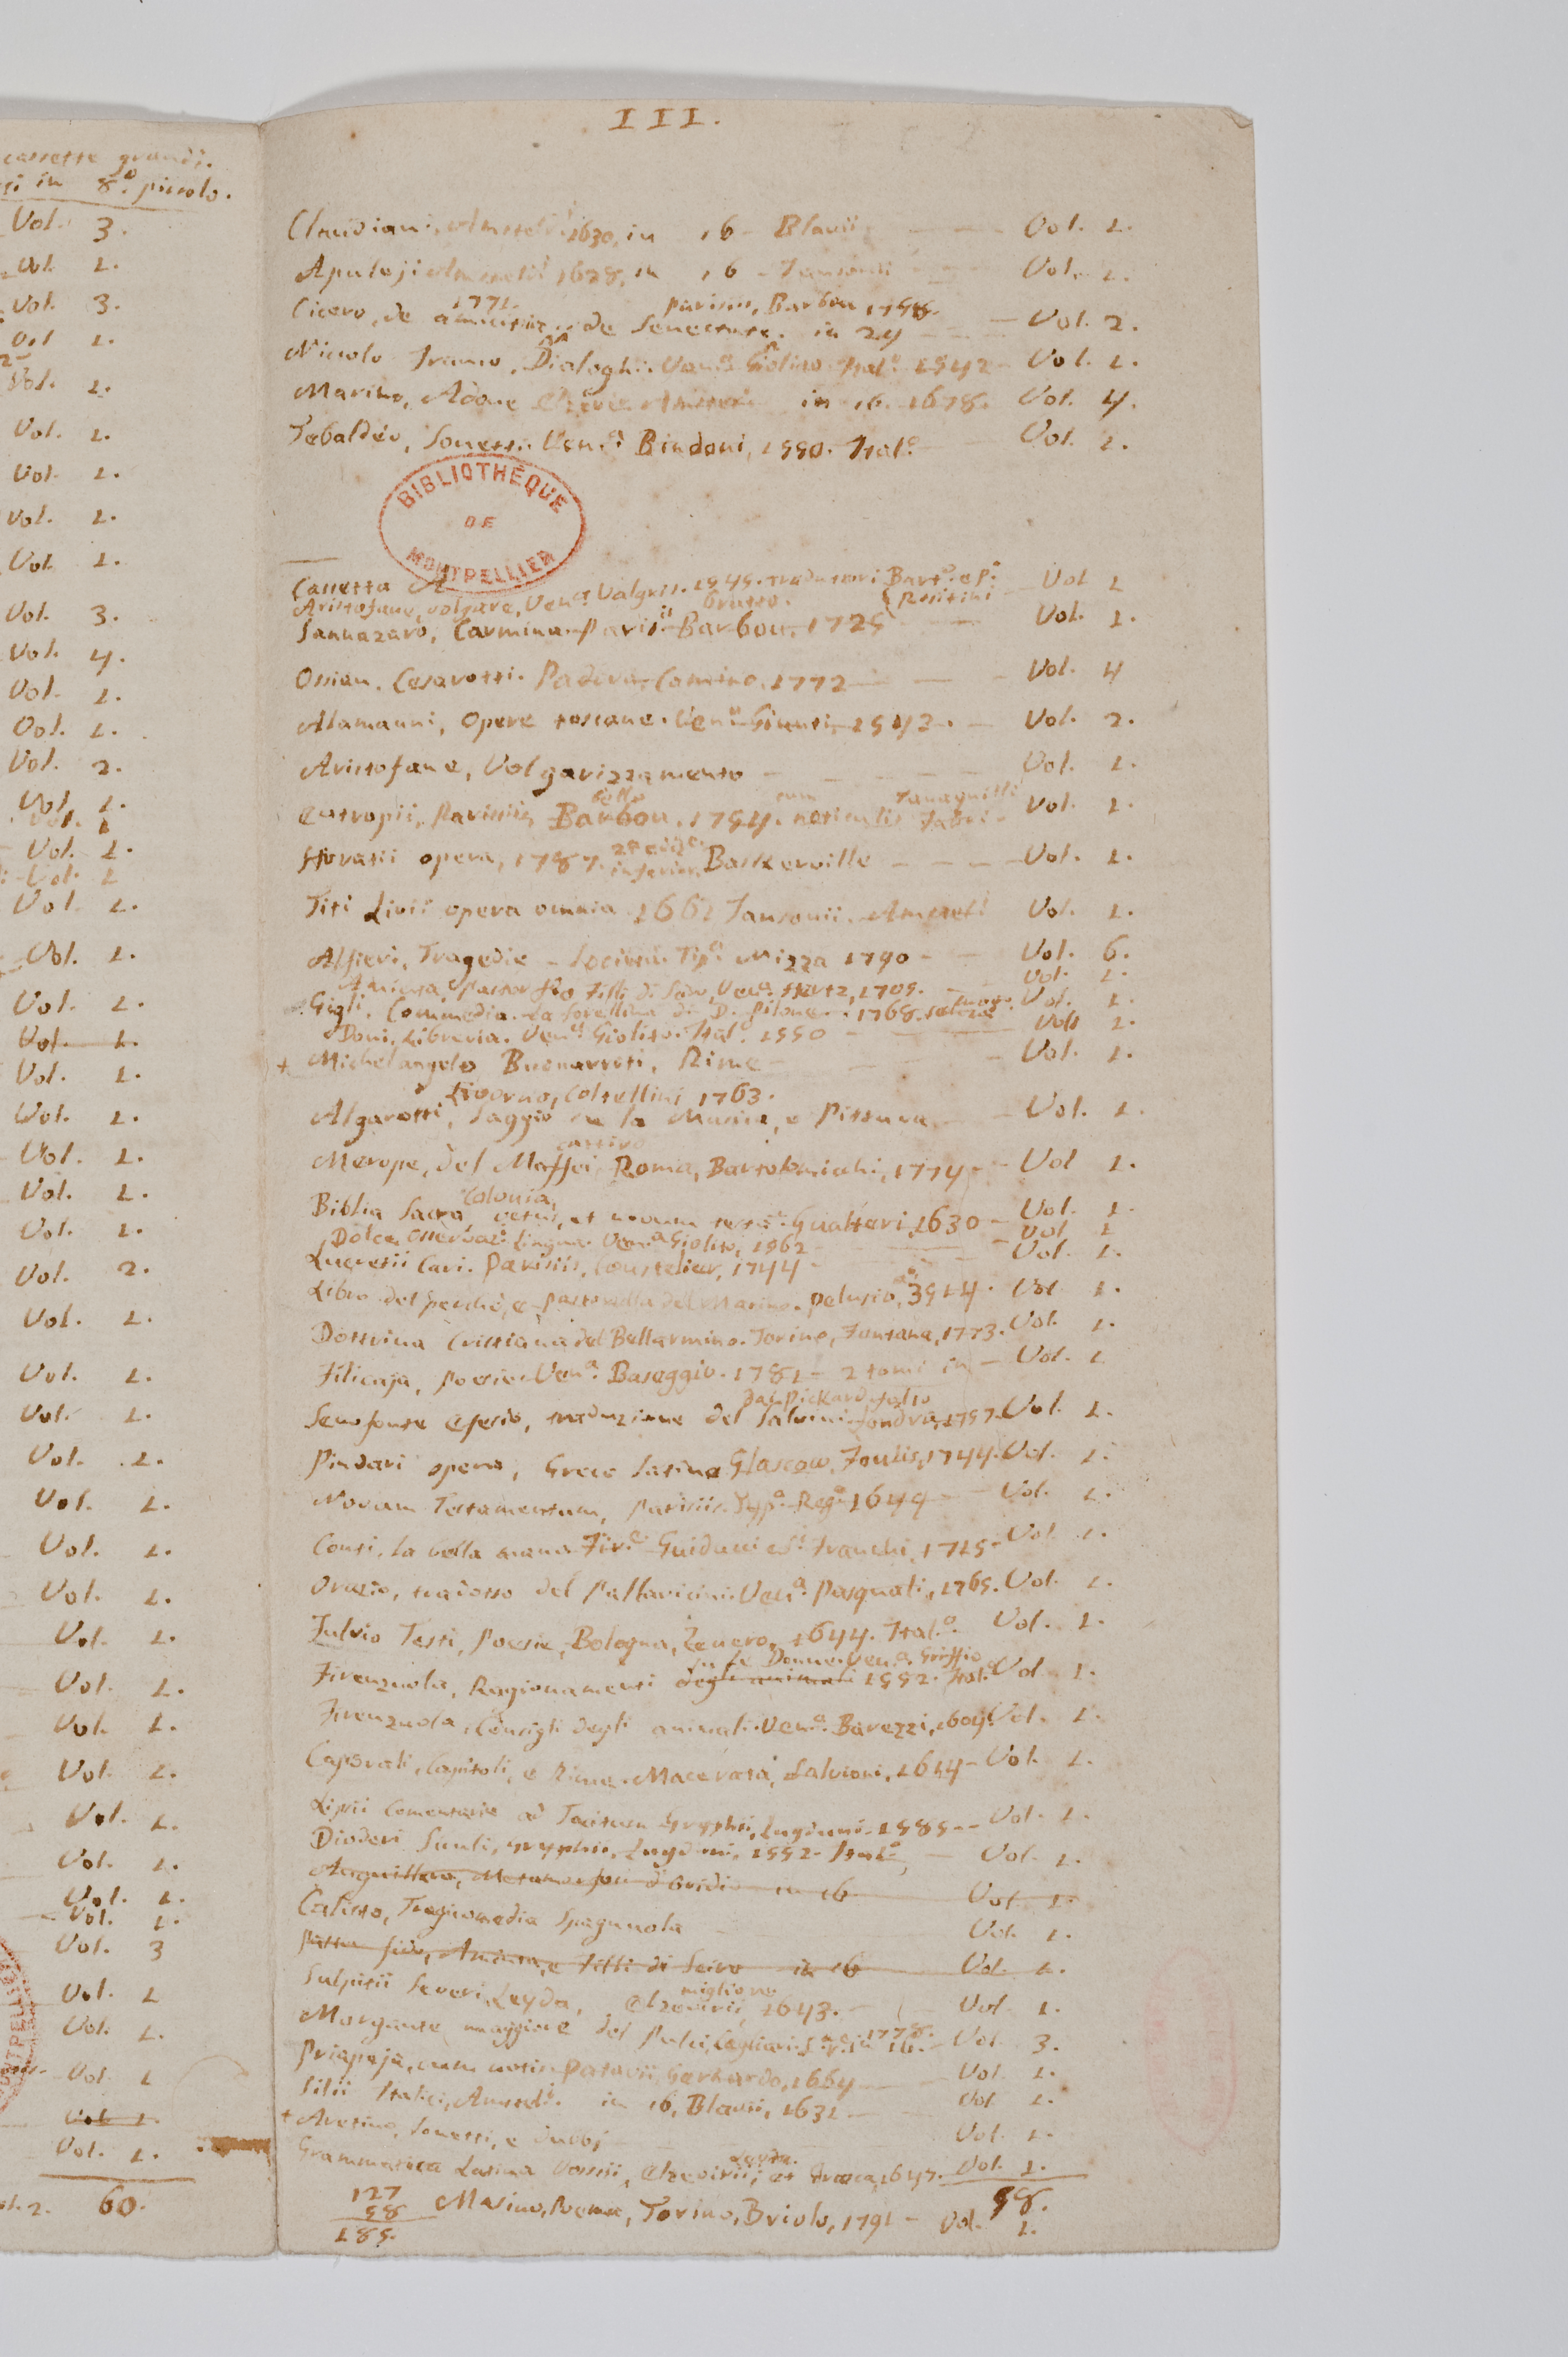 cassette grandi.
in 8.º piccolo.
Vol. 3.
Vol. 1.
Vol. 3.
Vol. 1.
Vol. 1.
Vol. 1.
Vol. 1.
Vol. 1.
Vol. 1.
Vol. 3.
Vol. 4.
Vol. 1.
Vol. 1.
Vol. 2.
Vol. 1.
Vol. 1
Vol. 1.
Vol. 1
Vol. 1.
Vol. 1.
Vol. 1.
Vol. 1.
Vol. 1.
Vol. 1.
Vol. 1.
Vol. 1.
Vol. 1.
Vol. 2.
Vol. 1.
Vol. 1.
Vol. 1.
Vol. 1.
Vol. 1.
Vol. 1.
Vol. 1.
Vol. 1.
Vol. 1.
Vol. 1.
Vol. 1.
Vol. 1.
Vol. 1.
Vol. 1.
Vol. 1.
Vol. 3
Vol. 1
Vol. 1.
Vol. 1
Vol. 1.
Vol. 1.
60.
III.
Claudiani, Amstel. 1630, in 16 - Blavii - Vol. 1.
Apuleji Amstel. 1628, in 16 - Jansonii - Vol. 1.
1771. Parisiis, Barbou 1758.
Cicero, de amicitia, de Senectute. in 24 - Vol. 2.
Niccolo Franco, Dialoghi. Ven.ª Giolito. Ital.º 1542 - Vol. 1.
Marino, Adone Elzevir Amster. in 16. 1678. Vol. 4.
Tebaldeo, Sonetti. Ven.ª Bindoni, 1550. Ital.º Vol. 1.
BIBLIOTHÈQUE
DE
MONTPELLIER
Cassetta A
Aristofane, volgare, Ven.ª Valgris. 1545. traduttori Bart.º e P.º Rositini - Vol 1
brutto.
Sannazaro, Carmina. Parisii Barbou. 1725 - Vol. 1.
Ossian. Cesarotti. Padova, Comino. 1772 - Vol. 4
Alamanni, Opere toscane. Ven.ª Giunti, 1542. - Vol. 2.
Aristofane, Volgarizzamento - Vol. 1.
bello cum Tanaquilli
Eutropii, Parisiis, Barbou. 1754. noticulis Fabri - Vol. 1.
2ª ediz.e
Horatii opera, 1787. inferior. Baskerville - Vol. 1.
Titi Livii opera omnia 1661 Jansonii. Amstel. Vol. 1.
Alfieri, Tragedie - Società Tip.ª Nizza 1790 - Vol. 6.
Aminta, Pastor fido Filli di Sciro, Ven.ª Hertz, 1705. - Vol. 1.
Gigli. Commedia. La Sorellina di D. Pilone. 1768. Vol. 1.
Doni, Libreria. Ven.ª Giolito. Ital.º 1550 - Vol. 1.
+ Michelangelo Buonarroti, Rime - Vol. 1.
Livorno, Coltellini 1763.
Algarotti, Saggio su la Musica, e Pittura. - Vol. 1.
cattivo
Merope, del Maffei, Roma, Bartolomichi, 1774 - Vol 1.
Colonia,
Biblia Sacra, vetus, et novum testa.m Gualteri, 1630 - Vol. 1.
Dolce, Osservaz.i Lingua. Ven.ª Giolito, 1562 - Vol 1
Lucretii Cari. Parisiis, Coustelier, 1744 - Vol. 1.
Libro del perchè, e Pastorella del Marino. Pelusio, 3514. Vol 1.
Dottrina Cristiana del Bellarmino. Torino, Fontana, 1773. Vol. 1.
Filicaja, Poesie. Ven.ª Baseggio. 1781 - 2 tomi in - Vol. 1
Jac. Pickard.
Senofonte Efesio, traduzione del Salvini. Londra, 1757. Vol. 1.
Pindari opera, Greco Latina Glascow, Foulis, 1744. Vol. 1.
Novum Testamentum, Parisiis. Typ.ª Reg.ª 1649 - Vol. 1.
Conti, la bella mano. Fir.e Guiducci e S.i Franchi, 1715 - Vol. 1.
Orazio, tradotto del Pallavicini. Ven.ª Pasquali, 1765. Vol. 1.
Fulvio Testi, Poesie, Bologna, Zenero, 1644. Ital.º Vol. 1.
su le Donne. Ven.ª Griffio
Firenzuola, Ragionamenti degli animali 1552. Ital.º Vol. 1.
Firenzuola, Consigli degli animali. Ven.ª Barezzi, 1604. Vol. 1.
Caporali, Capitoli, e Rime. Macerata, Salvioni, 1614 - Vol. 1.
Lipsii Comentario ad Tacitum Gryphii, Lugduni. 1585 - Vol. 1.
Diodori Siculi, Gryphii, Lugduni, 1552. Ital.º - Vol. 1.
Anguillara, Metamorfosi d'Ovidio in 16 Vol 1.
Calisto, Tragicomedia Spagnuola Vol. 1.
Pastor fido, Aminta, e Filli di Sciro in 16 Vol. 1.
migliore
Sulpitii Severi, Leyda, Elzevirii, 1643. - Vol 1.
Morgante maggiore del Pulci, Cagliari. 1778. in 16. - Vol. 3.
Priapeja, cum notis. Patavii, Gerhardo, 1664 - Vol. 1.
Silii Italici, Amstel. in 16, Blavii, 1631 - Vol 1.
+ Aretino, Sonetti, e dubbj Vol. 1.
Leyda.
Grammatica Latina Vossii, Elzevirii, et Graeca, 1647. Vol. 1.
58.
127
58
185.
Masino, Poema, Torino, Briolo, 1791 - Vol. 1.